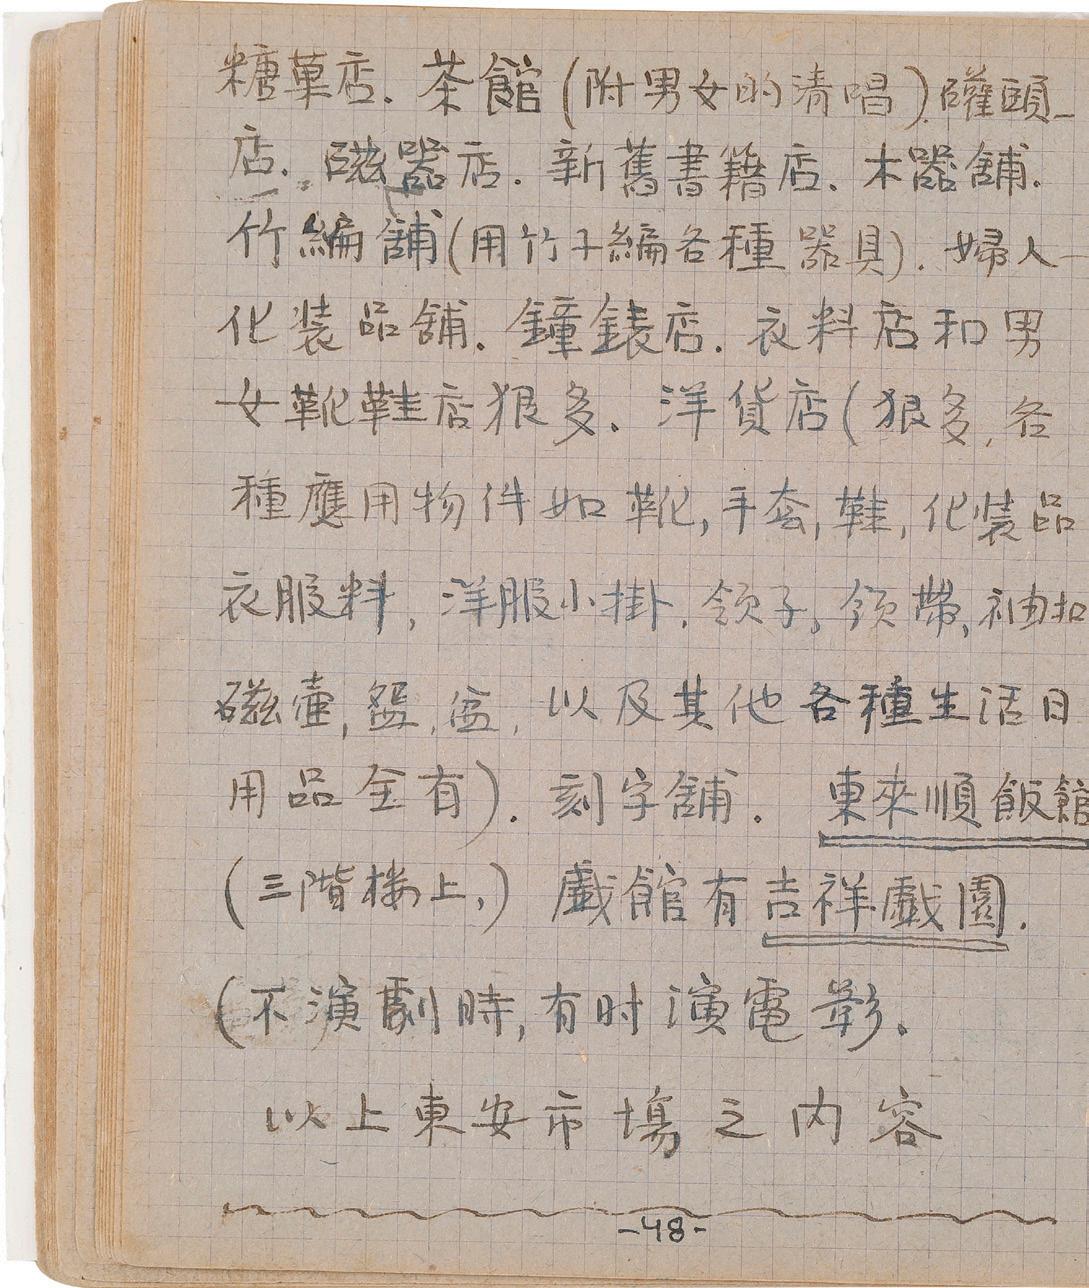 糖菓店. 茶館(附男女的清唱). 罐頭-
店. 磁器店. 新舊書籍店. 木器舖.
竹編舖(用竹子編各種器具). 婦人-
化裝品舖. 鐘錶店. 衣料店和男
女靴鞋店狠多. 洋貨店(狠多, 各
種應用物件如靴, 手套, 鞋, 化裝品
衣服料, 洋服小掛, 領子, 領帶, 袖扣
磁壺, 盌, 盆, 以及其他各種生活日
用品全有). 刻字舖. 東來順飯館
(三階楼上,) 戲館有吉祥戲園.
(不演劇時, 有时演電影.
以上東安市場之內容
-48-